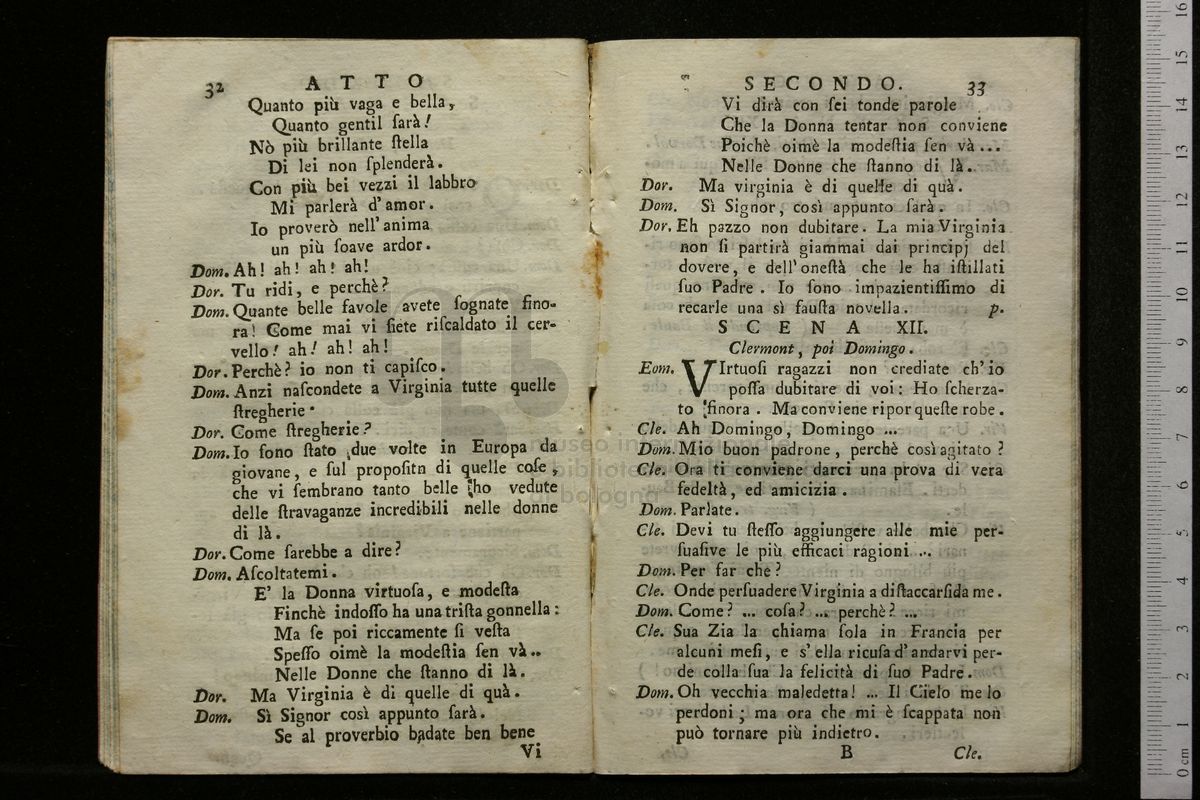 32 A T T O
Quanto più vaga e bella,
Quanto gentil ſarà!
Nò più brillante ſtella
Di lei non ſplenderà.
Con più bei vezzi il labbro
Mi parlerà d'amor.
Io proverò nell'anima
un più ſoave ardor.
Dom. Ah! ah! ah! ah!
Dor. Tu ridi, e perchè?
Dom. Quante belle favole avete ſognate fino-
ra! Come mai vi ſiete riſcaldato il cer-
vello! ah! ah! ah!
Dor. Perchè? io non ti capiſco.
Dom. Anzi naſcondete a Virginia tutte quelle
ſtregherie.
Dor. Come ſtregherie?
Dom. Io ſono ſtato due volte in Europa da
giovane, e ſul propoſitn di quelle coſe,
che vi ſembrano tanto belle ho vedute
delle ſtravaganze incredibili nelle donne
di là.
Dor. Come ſarebbe a dire?
Dom. Aſcoltatemi.
E' la Donna virtuoſa, e modeſta
Finchè indoſſo ha una triſta gonnella:
Ma ſe poi riccamente ſi veſta
Speſſo oimè la modeſtia ſen và..
Nelle Donne che ſtanno di là.
Dor. Ma Virginia è di quelle di quà.
Dom. Sì Signor così appunto ſarà.
Se al proverbio badate ben bene
Vi
SECONDO. 33
Vi dirà con ſei tonde parole
Che la Donna tentar non conviene
Poichè oimè la modeſtia ſen và...
Nelle Donne che ſtanno di là.
Dor. Ma virginia è di quelle di quà.
Dom. Sì Signor, così appunto ſarà.
Dor. Eh pazzo non dubitare. La mia Virginia
non ſi partirà giammai dai principj del
dovere, e dell'oneſtà che le ha iſtillati
ſuo Padre. Io ſono impazientiſſimo di
recarle una sì fauſta novella. p.
S C E N A XII.
Clermont, poi Domingo.
Eom. VIrtuoſi ragazzi non crediate ch'io
poſſa dubitare di voi: Ho ſcherza-
to finora. Ma conviene ripor queſte robe.
Cle. Ah Domingo, Domingo ...
Dom. Mio buon padrone, perchè così agitato?
Cle. Ora ti conviene darci una prova di vera
fedeltà, ed amicizia.
Dom. Parlate.
Cle. Devi tu ſteſſo aggiungere alle mie per-
ſuaſive le più efficaci ragioni ...
Dom. Per far che?
Cle. Onde perſuadere Virginia a diſtaccarſi da me.
Dom. Come? ... coſa? ... perchè? ...
Cle. Sua Zia la chiama ſola in Francia per
alcuni meſi, e s'ella ricuſa d'andarvi per-
de colla ſua la felicità di ſuo Padre.
Dom. Oh vecchia maledetta! ... Il Cielo me lo
perdoni; ma ora che mi è ſcappata non
può tornare più indietro.
B Cle.
museo internazionale
biblioteca
di bologna
0 cm 1 2 3 4 5 6 7 8 9 10 11 12 13 14 15 16